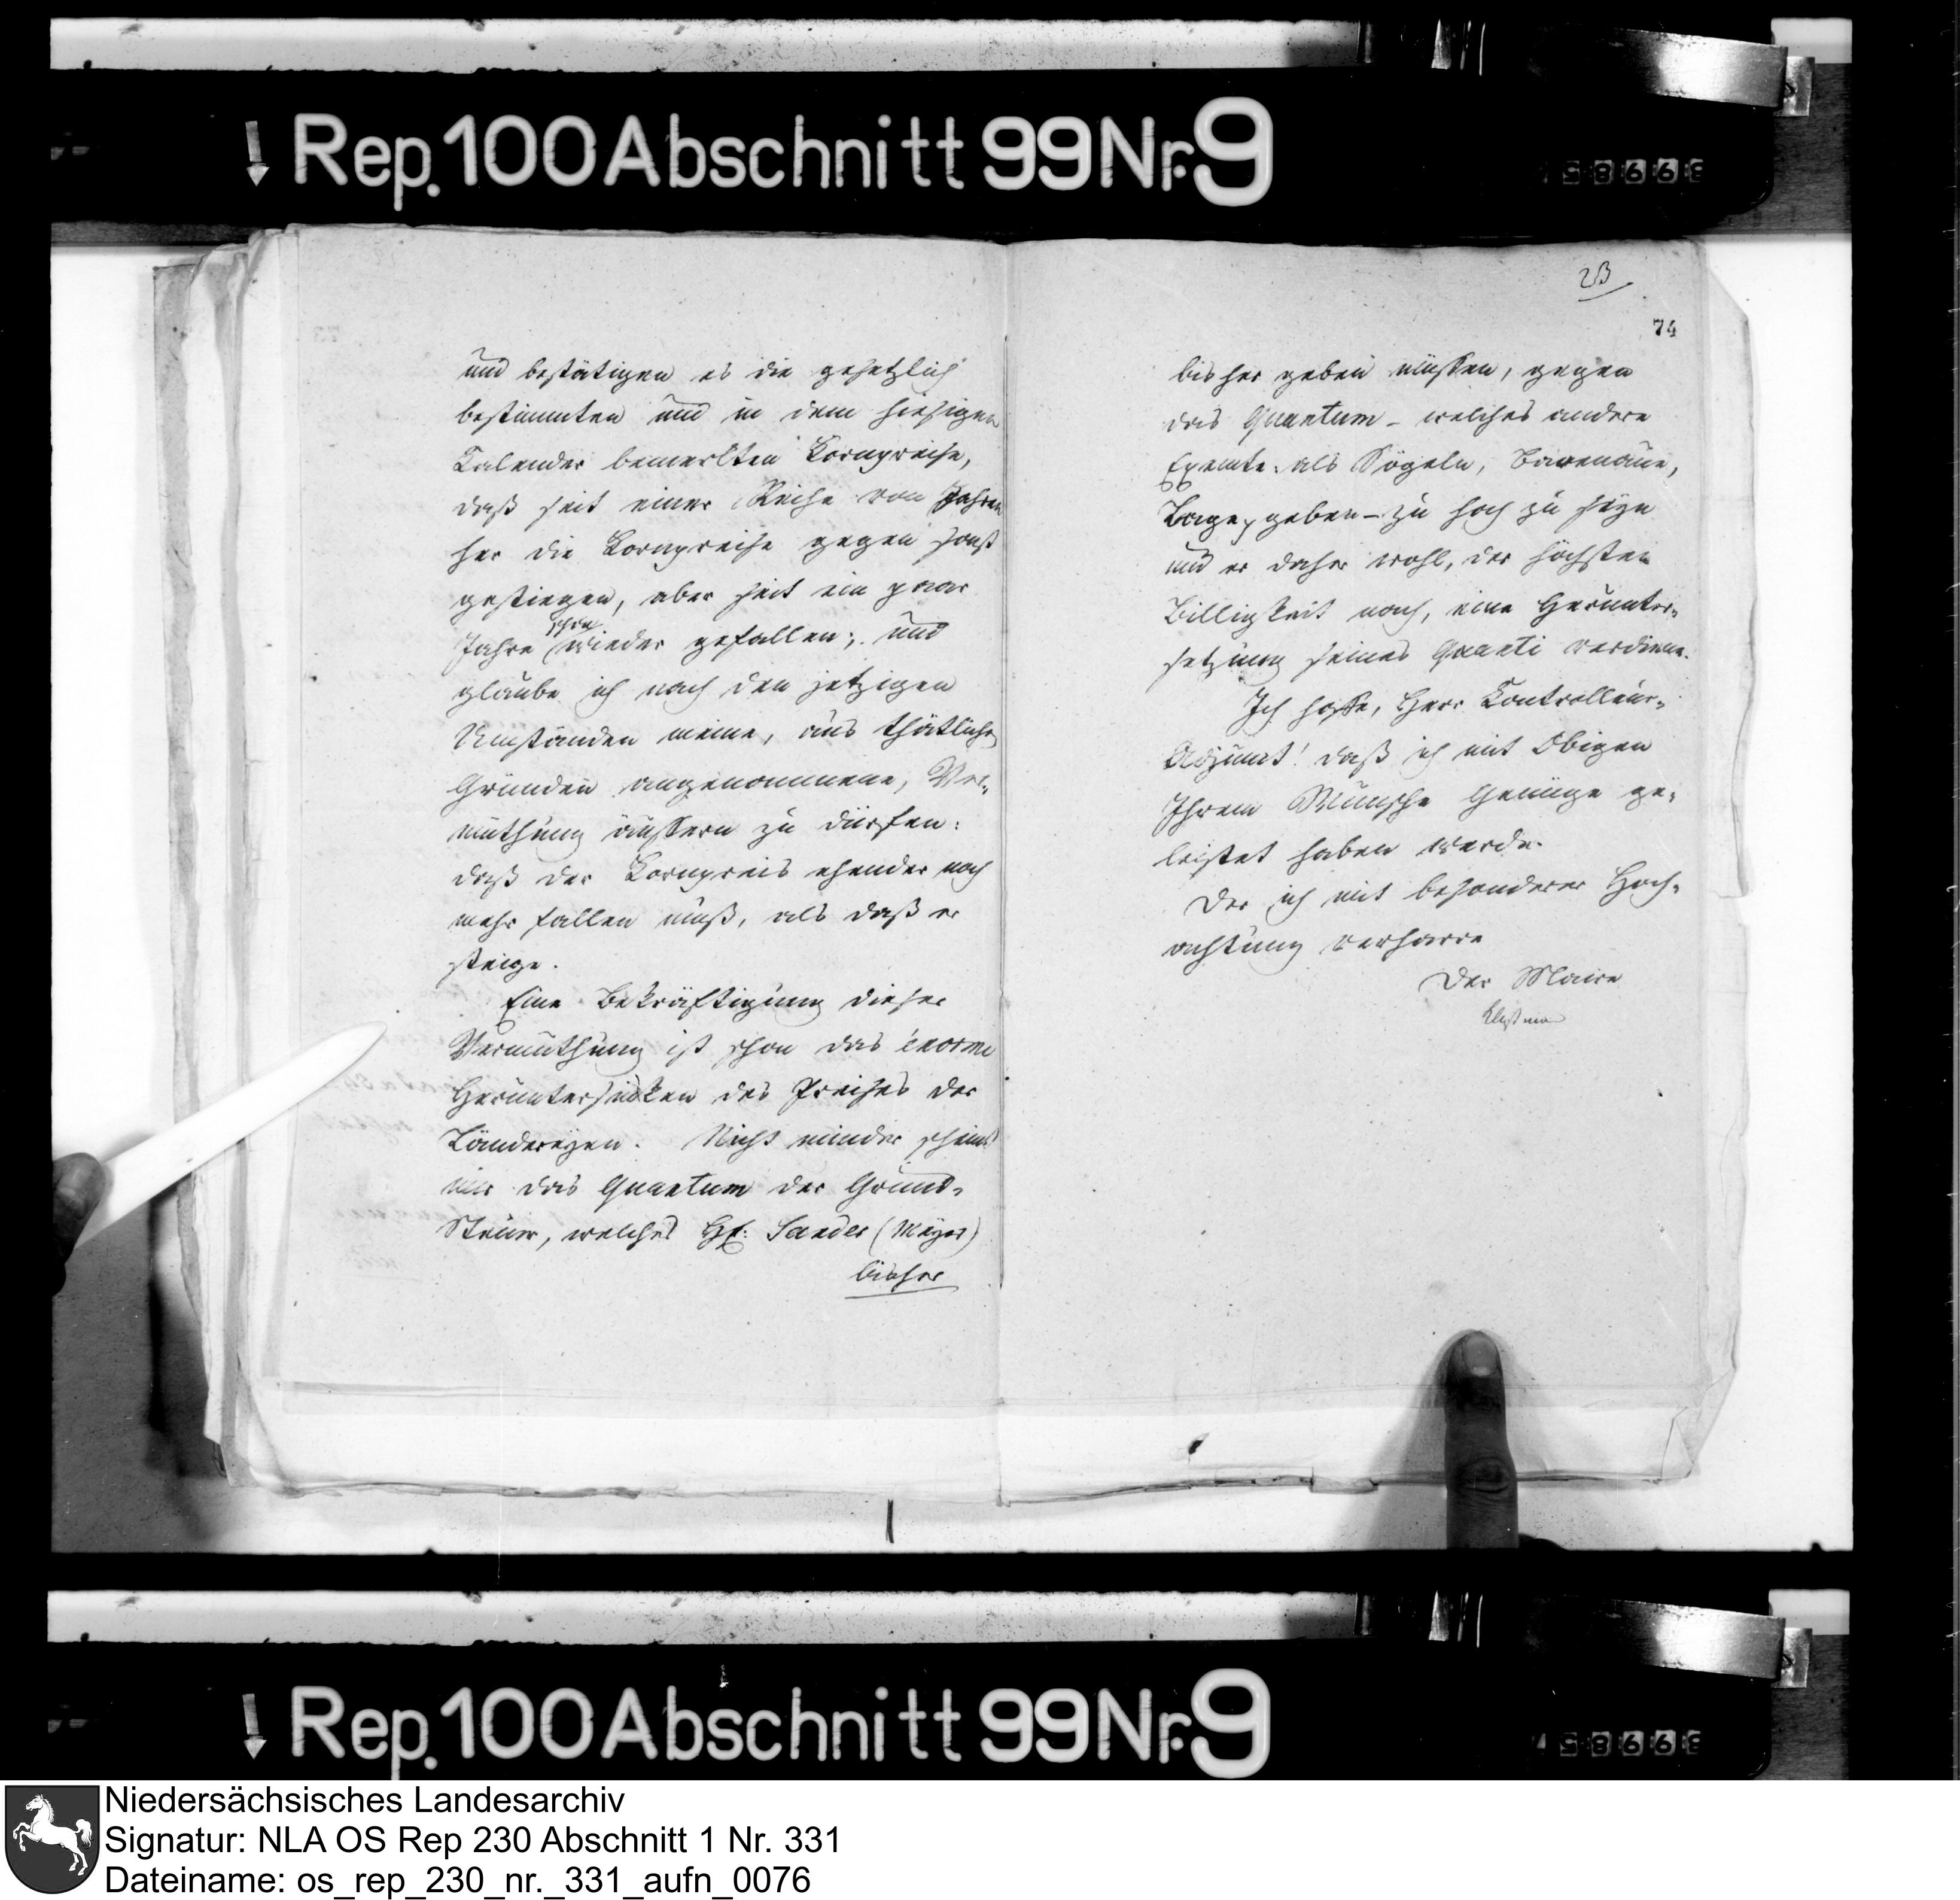 Rep. 100 Abschnitt 99 Nr. 9
und bestätigen es die gesetzlich
bestimmten und in dem hiesigen
Kalender bemerkten Kornpreise,
daß seit einer Reihe von Jahren
her die Kornpreise gegen sonst
gestiegen, aber seit ein paar
schon
Jahre wieder gefallen; und
glaube ich nach den jetzigen
Umständen meine, aus thätlichen
Gründen angenommene, Ver-
muthung äussern zu dürfen:
daß der Kornpreis ehender noch
mehr fallen muß, als daß er
steige.
Eine Bekräftigung dieser
Vermuthung ist schon das enorme
Heruntersinken des Preises der
Ländereyen. Nicht minder scheint
mir das Quantum der Grund-
Steuer, welches Hr. Sander (Meyer)
bisher
23
74
bisher geben müssen, gegen
das Quantum - welches andere
Exemte: als Sögeln,
Lage, geben - zu hoch zu seyn
und er daher wohl, der höchsten
Billigkeit nach, eine Herunter-
setzung seines Quanti verdiene.
Ich hoffe, Herr Controlleur-
Adjunct! daß ich mit Obigen
Ihrem Wunsche Genüge ge-
leistet haben werde.
Der ich mit besonderer Hoch-
achtung verharre
Der Maire
Rep. 100 Abschnitt 99 Nr. 9
Niedersächsisches Landesarchiv
Signatur: NLA OS Rep 230 Abschnitt 1 Nr. 331
Dateiname: os_rep_230_nr._331_aufn_0076